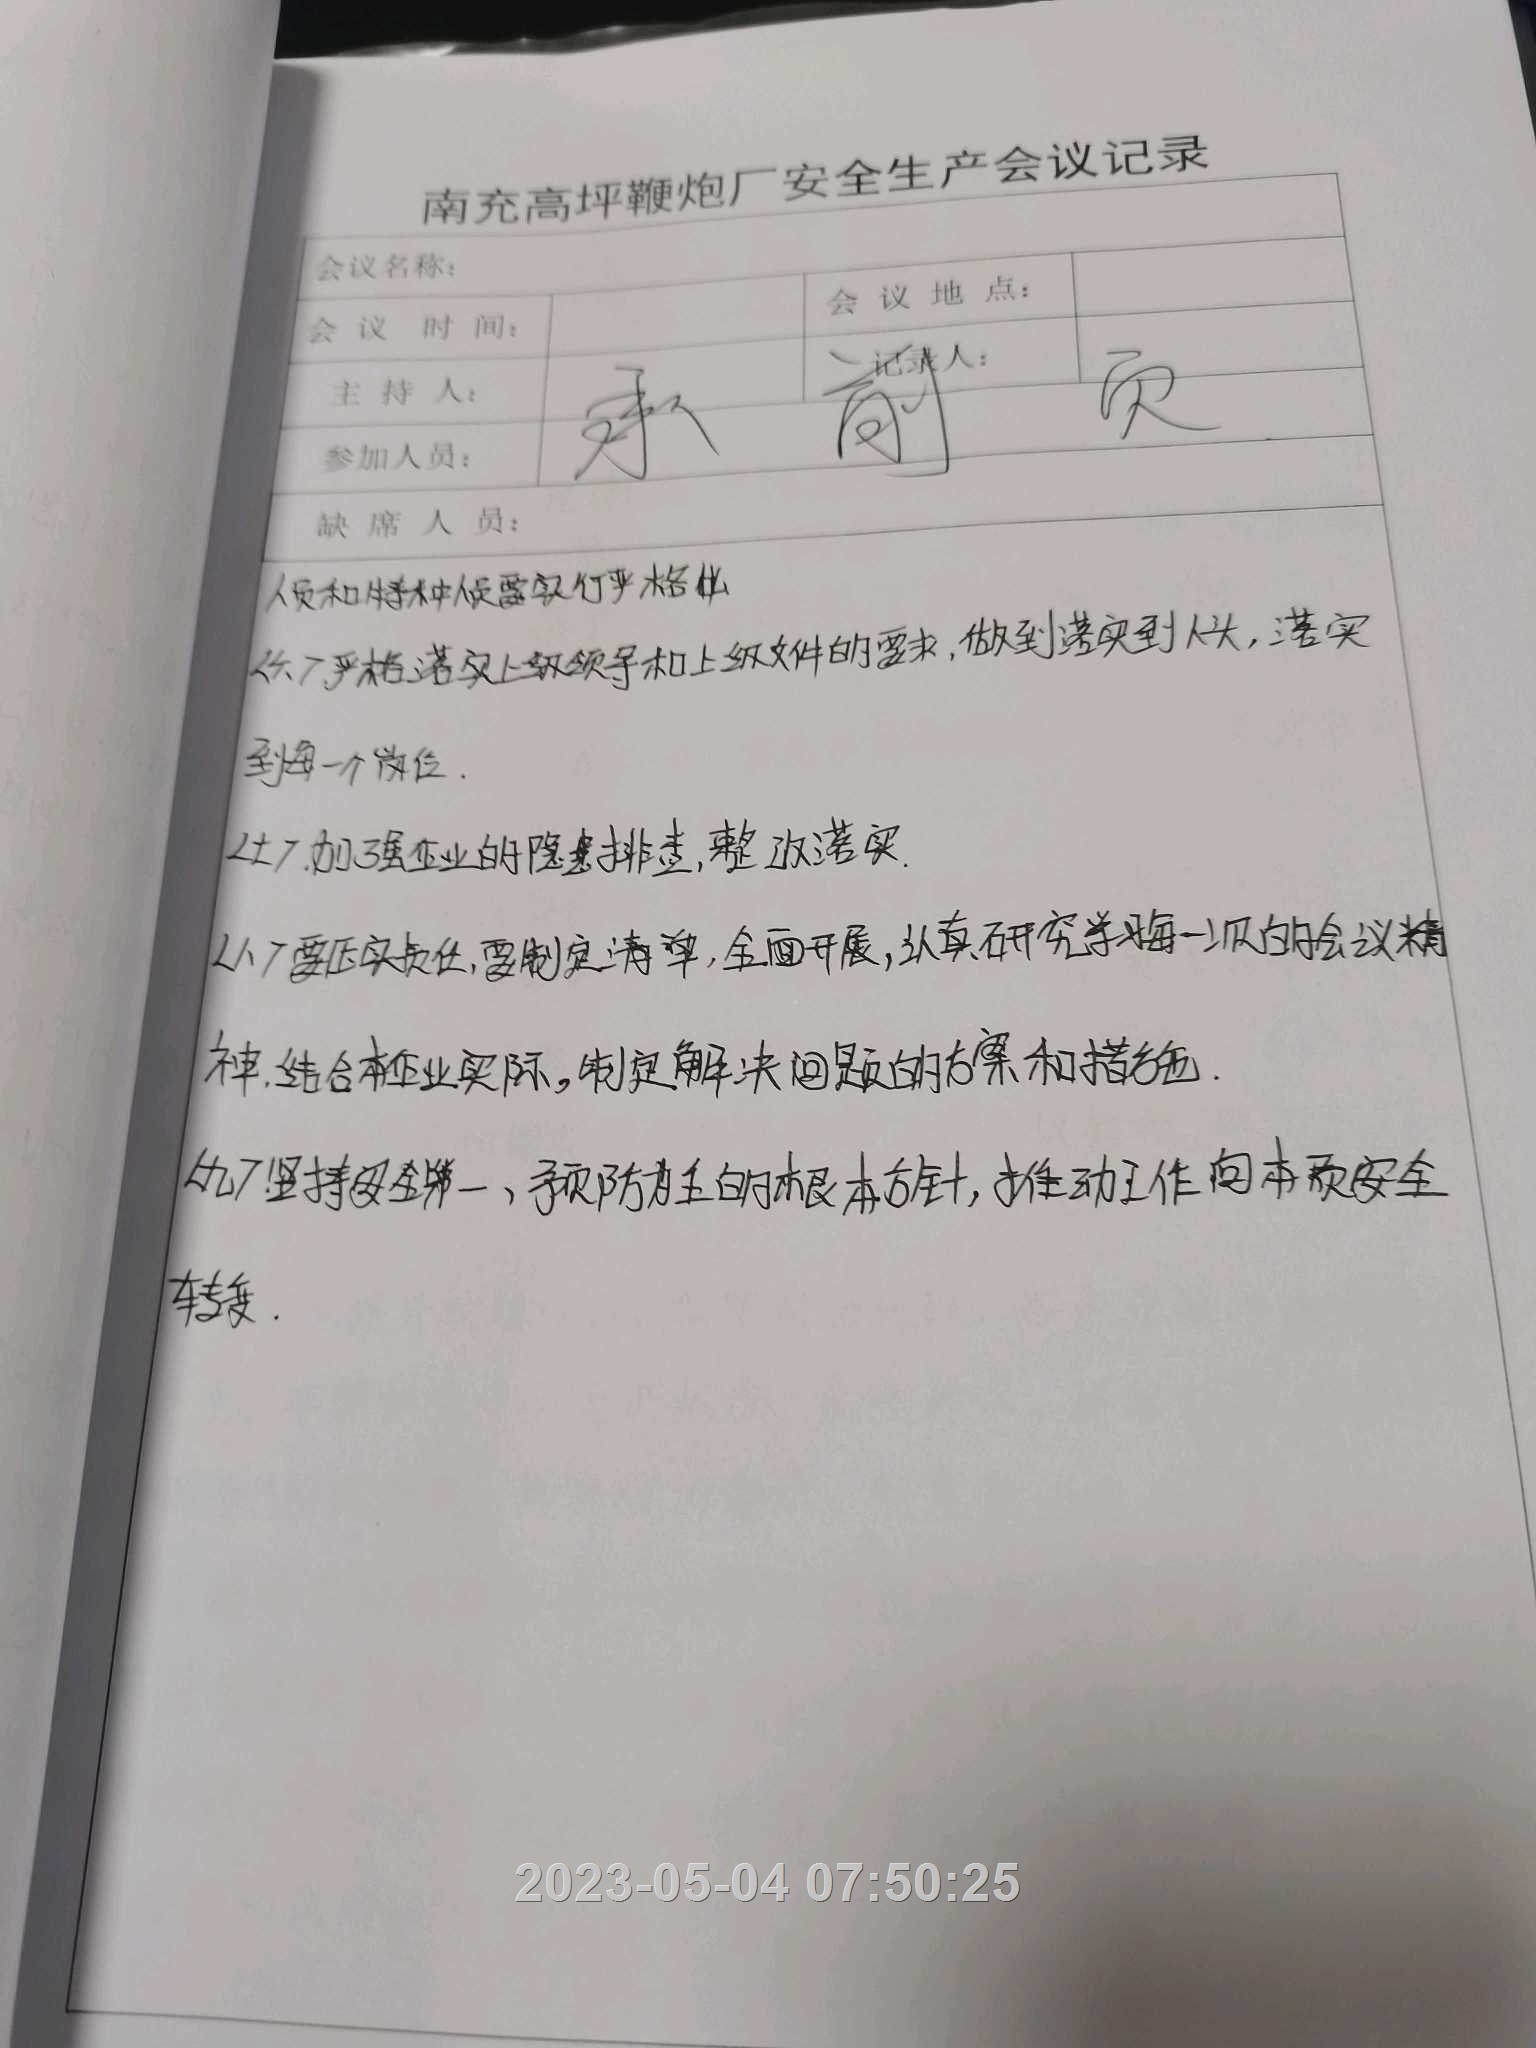 南充高坪鞭炮厂安全生产会议记录
会议名称：
会议时间： 会议地点：
主持人： 记录人：
参加人员：
承前页
缺席人员：
人员和特种人员要实行严格化
<六>严格落实上级领导和上级文件的要求，做到落实到人头，落实
到每一个岗位.
<七>.加强企业的隐患排查，整改落实.
<八>要压实责任，要制定清单，全面开展，认真研究学习每一次的会议精
神.结合本企业实际，制定解决问题的方案和措施.
<九>.坚持安全第一、预防为主的根本方针，推动工作向本质安全
转变.
2023-05-04 07:50:25